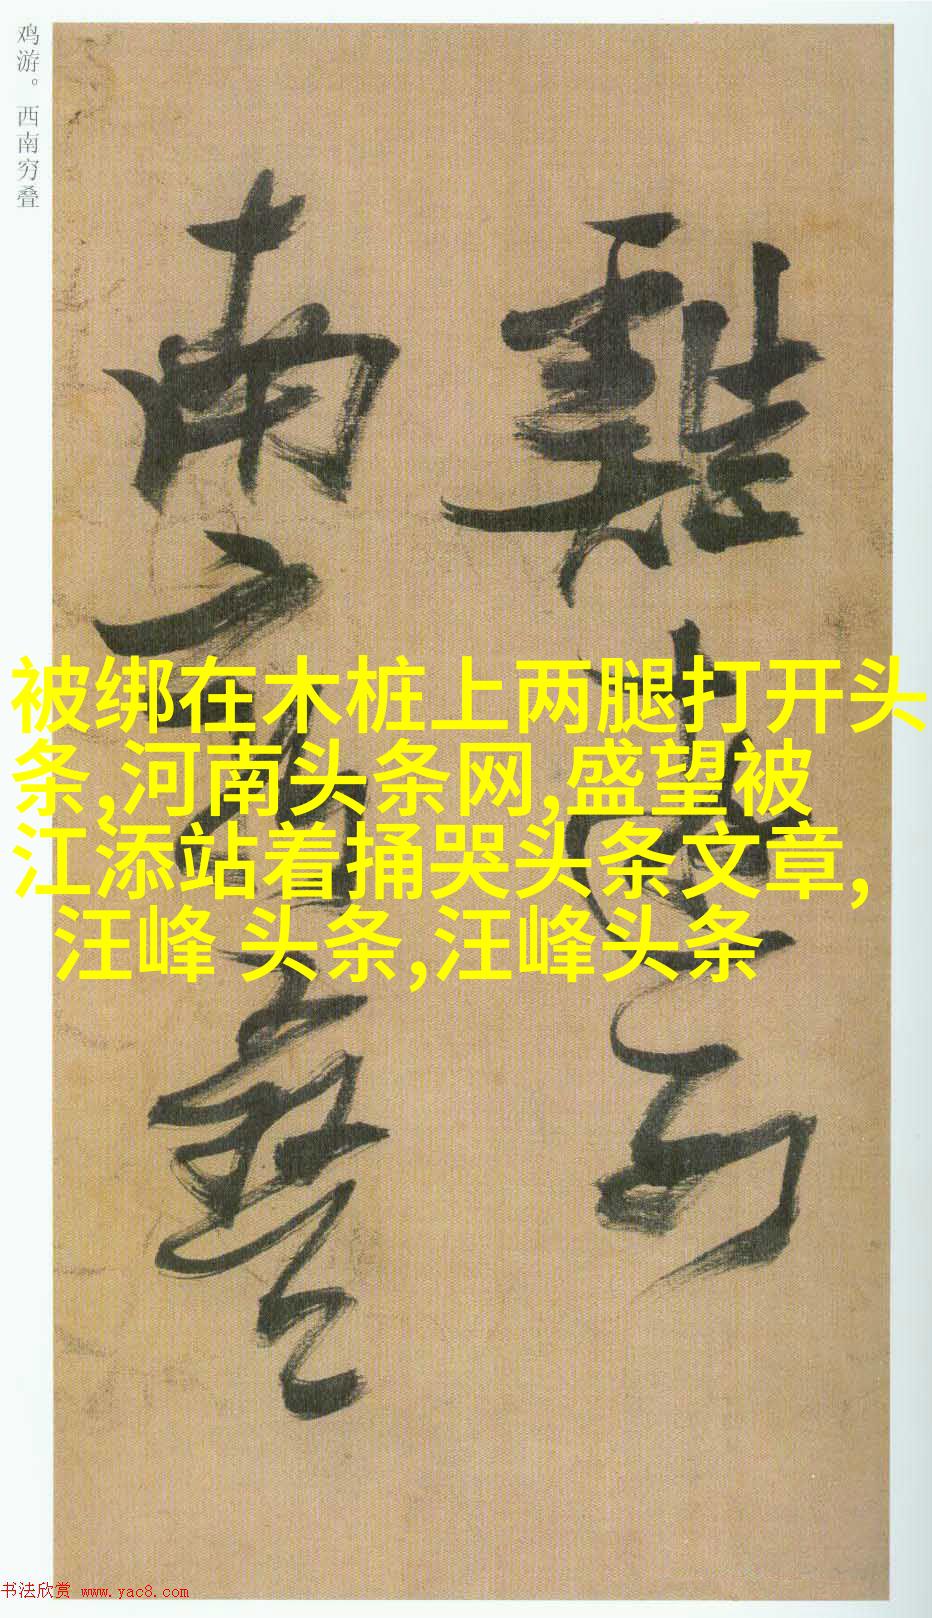 鸡游。西南穷叠
雞游西
南穷叠
被绑在木桩上两腿打开头
条,河南头条网,盛望被
江添站着捅哭头条文章,
汪峰 头条,汪峰头条
书法欣赏 www.yac8.com